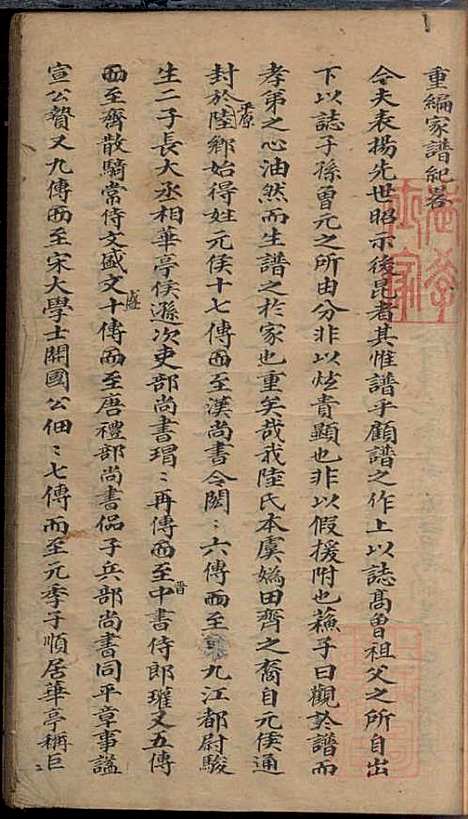 重編家譜紀畧
今夫表揚先世昭示後昆者其惟譜乎顧譜之作上以誌髙曾祖父之所自出
下以誌子孫曾元之所由分非以炫貴顯也非以假援附也蘓子曰觀於譜而
孝弟之心油然而生譜之於家也重矣哉我陸氏本虞媯田齊之裔自元侯通
封於平原陸鄉始得姓元侯十七傳而至漢尚書令閎：六傳而至九江都尉駿
生二子長大丞相華亭侯遜次吏部尚書瑁：再傳而至晋中書侍郎瓘又五傳
而至齊散騎常侍文盛文盛十傳而至唐禮部尚書侶子兵部尚書同平章事謚
宣公贄又九傳而至宋大學士開國公佃：七傳而至元季子順居華亭稱巨